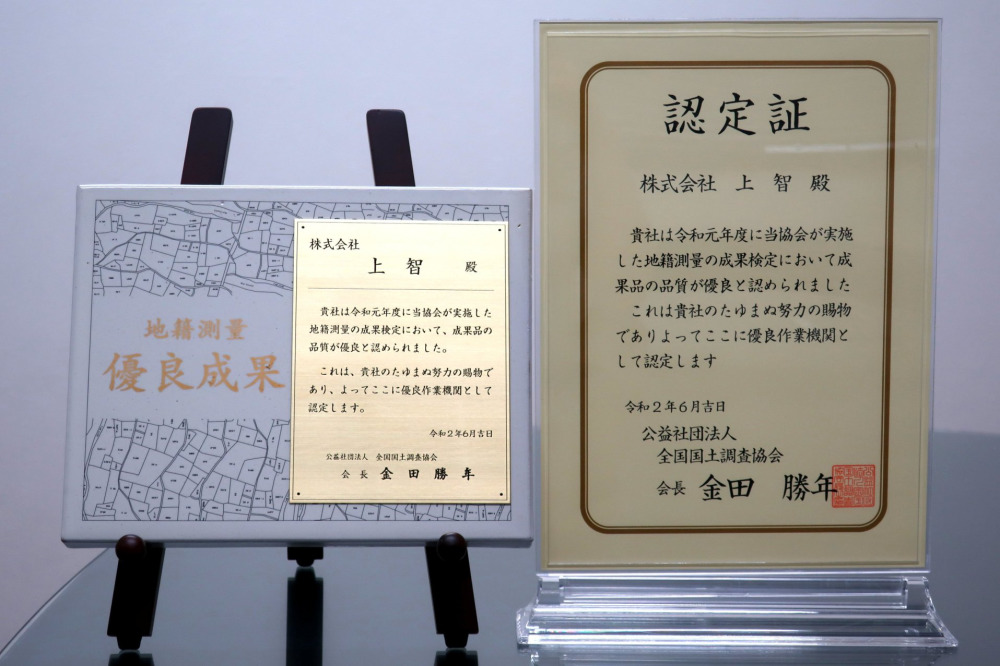 地籍測量
優良成果
株式会社
上智 殿
貴社は令和元年度に当協会が実施した
地籍測量の成果検定において、成果品の
品質が優良と認められました。
これは、貴社のたゆまぬ努力の賜物で
あり、よってここに優良作業機関として
認定します。
令和2年6月吉日
公益社団法人 全国国土調査協会
会長 金田勝年
認定証
株式会社 上智殿
貴社は令和元年度に当協会が実施
した地籍測量の成果検定において成
果品の品質が優良と認められました
これは貴社のたゆまぬ努力の賜物
でありよってここに優良作業機関と
して認定します
令和2年6月吉日
公益社団法人
全国国土調査協会
会長 金田 勝年